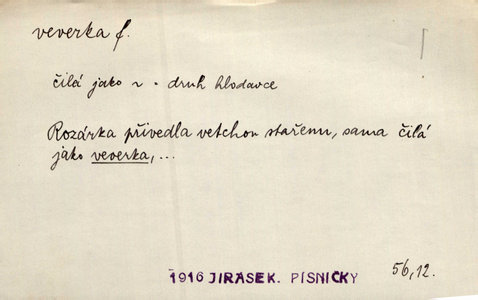 veverka f.
čilá jako ~ - druh hlodavce
Rozárka přivedla vetchou stařenu, sama čilá
jako veverka, ...
1916 JIRASEK. PISNIČKY
56,12.